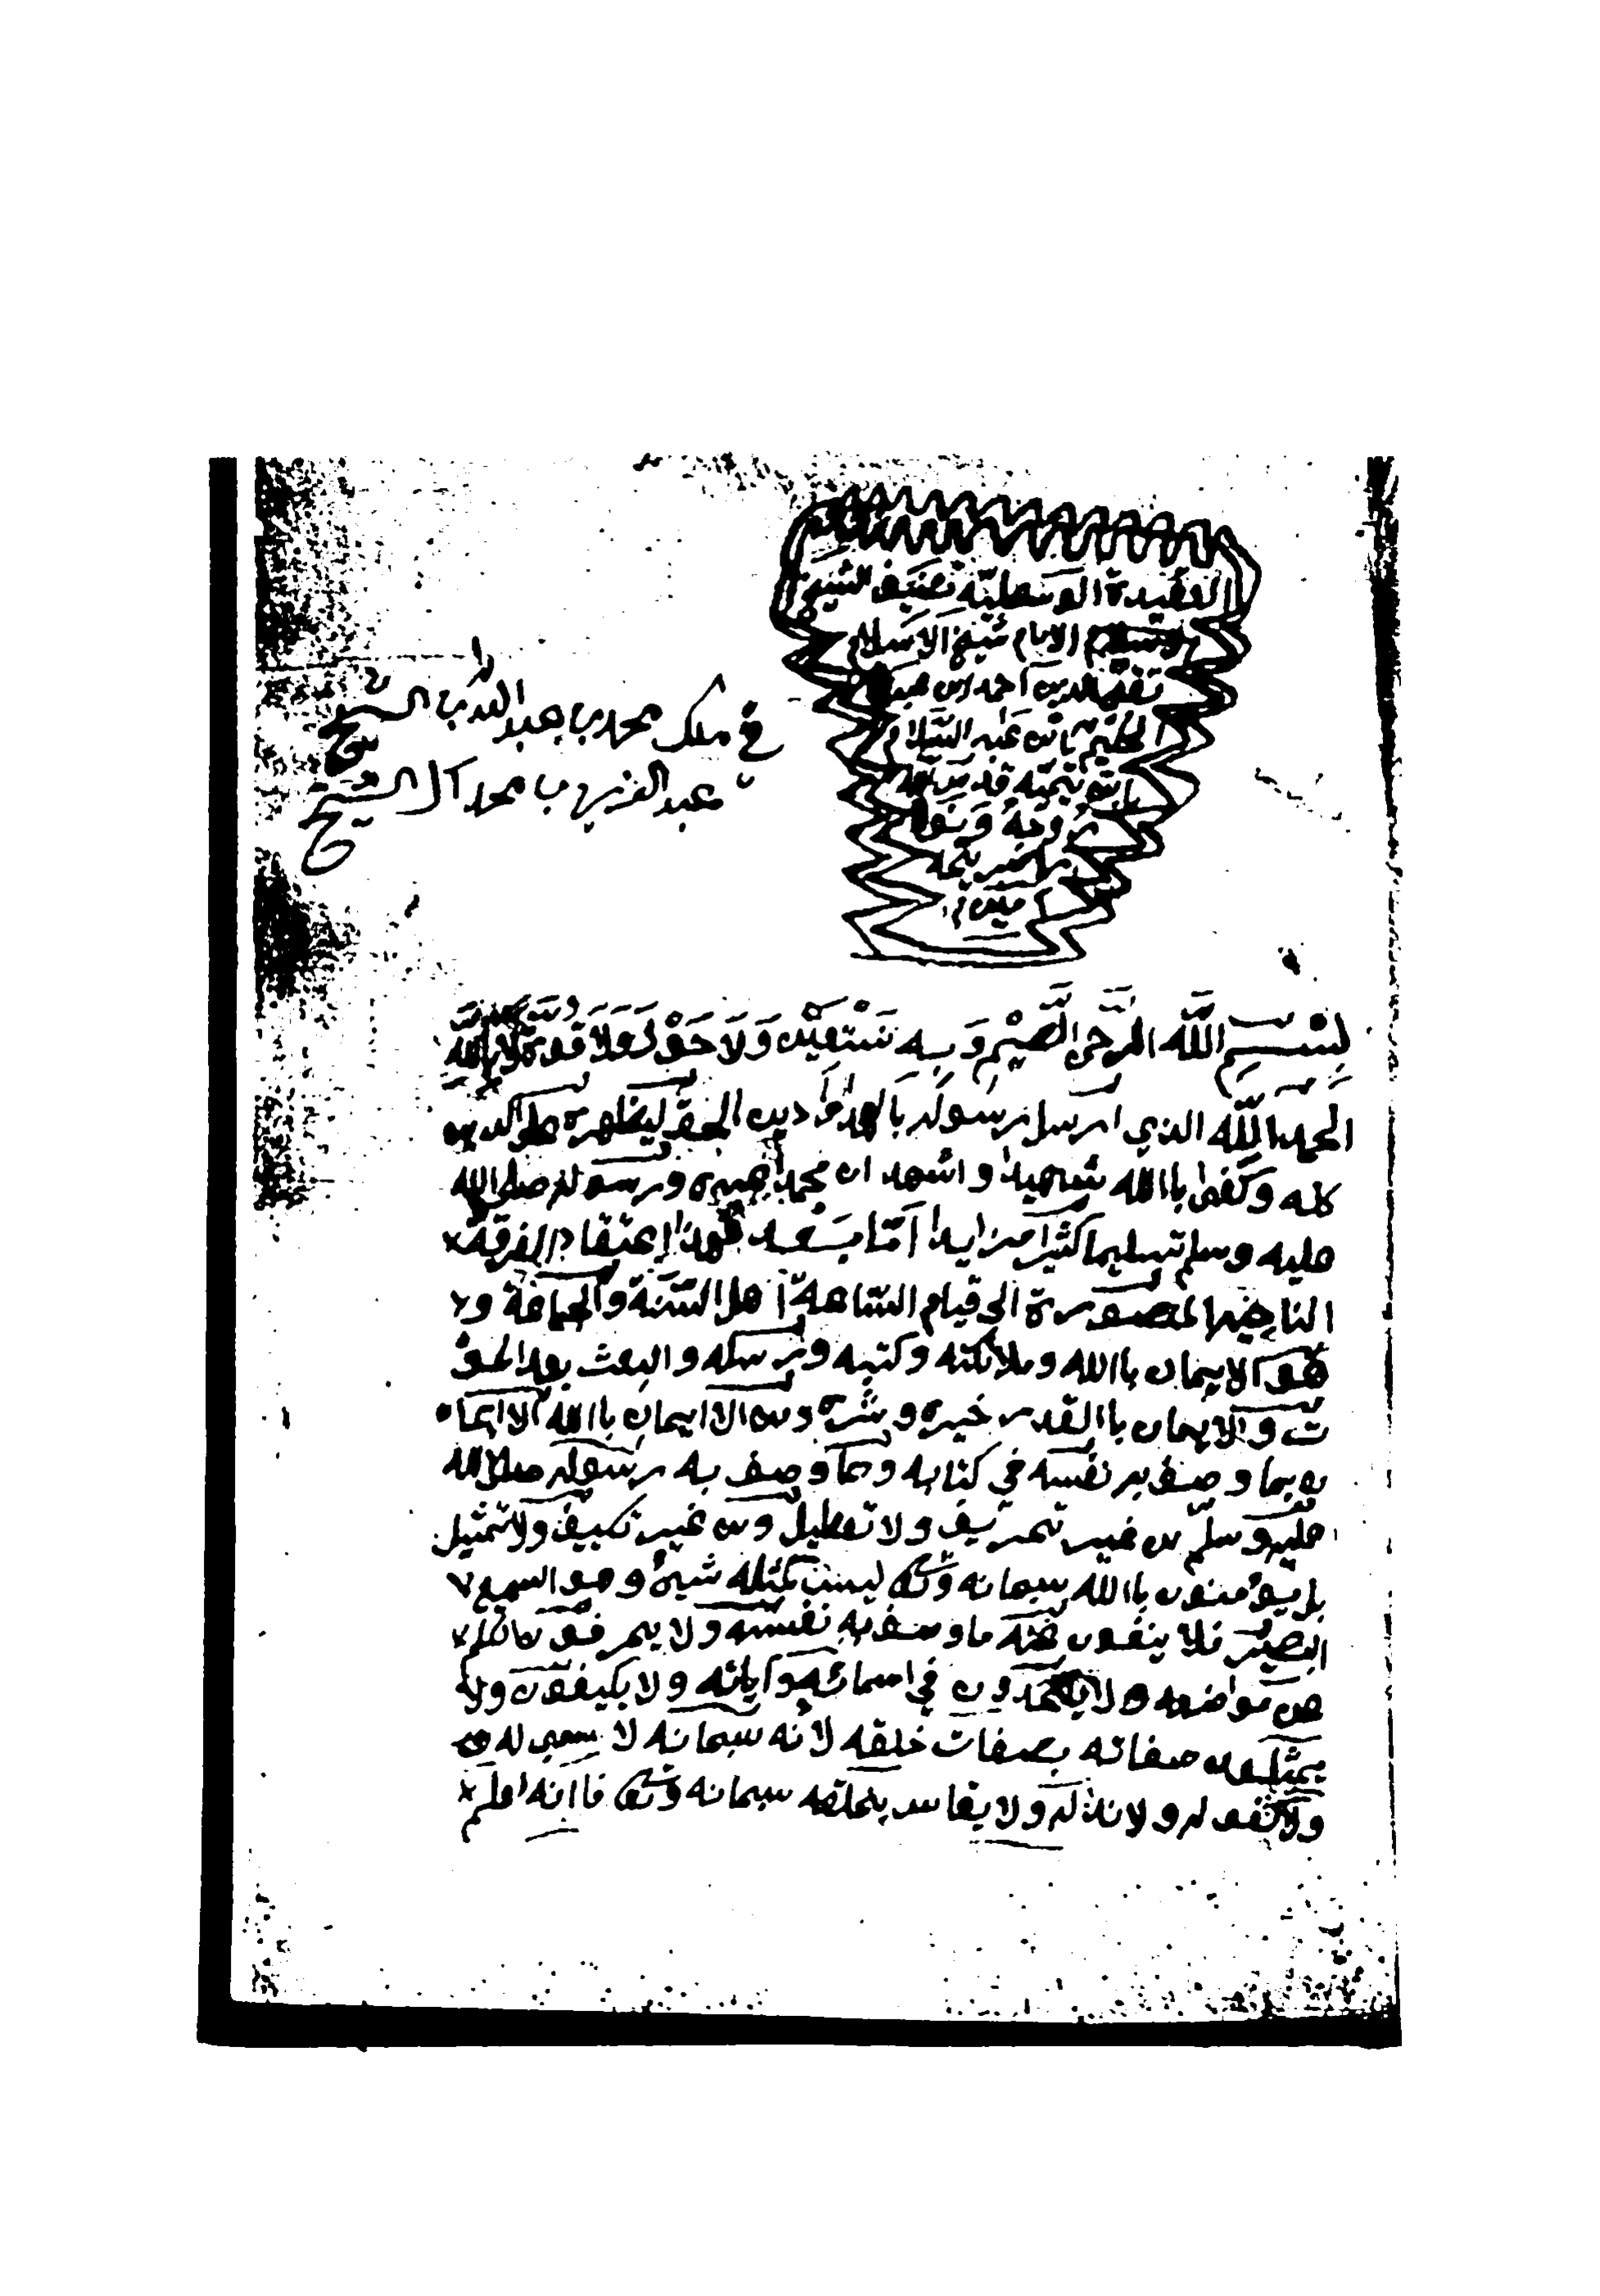 العقيدة الوسطية تصنيف الشيخ
الامام شيخ الاسلام
تقي الدين احمد ابن عبد
الحليم بن عبد السلام
ابن تيمية قدس الله
روحه ونور
ضريحه
في ملك محمد بن عبد الله بن الشيخ
عبد العزيز بن محمد آل الشيخ
بسم الله الرحمن الرحيم وبه نستعين ولا حول ولا قوة الا بالله
الحمد الله الذي ارسل رسوله بالهدا ودين الحق ليظهره على الدين
كله وكفى باالله شهيدا واشهد ان محمدا عبده ورسوله صلى الله
عليه وسلم تسليما كثيرا مزايدا أما بعد فهذا إعتقاد الفرقة
الناجية المنصورة الى قيام الساعة أهل السنة والجماعة و
هو الايمان باالله وملائكته وكتبه ورسله والبعث بعد المو
ت والايمان باالقدر خيره وشره ومن الايمان باالله الايما
ن بما وصف به نفسه في كتابه وبما وصف به رسوله صلى الله
عليه وسلم من غير تحريف ولا تعطيل ومن غير تكييف ولا تمثيل
بل يؤمنون باالله سبحانه وتعالى ليس كمثله شيء وهو السميع
البصير فلا ينفون عنه ما وصف به نفسه ولا يحرفون الكلم
عن مواضعه ولا يلحدون في اسمائه وآياته ولا يكيفون ولا
يمثلون صفاته بصفات خلقه لانه سبحانه لا سمي له
ولا كفو له ولا ند له ولا يقاس بخلقه سبحانه وتعالى فاانه اعلم